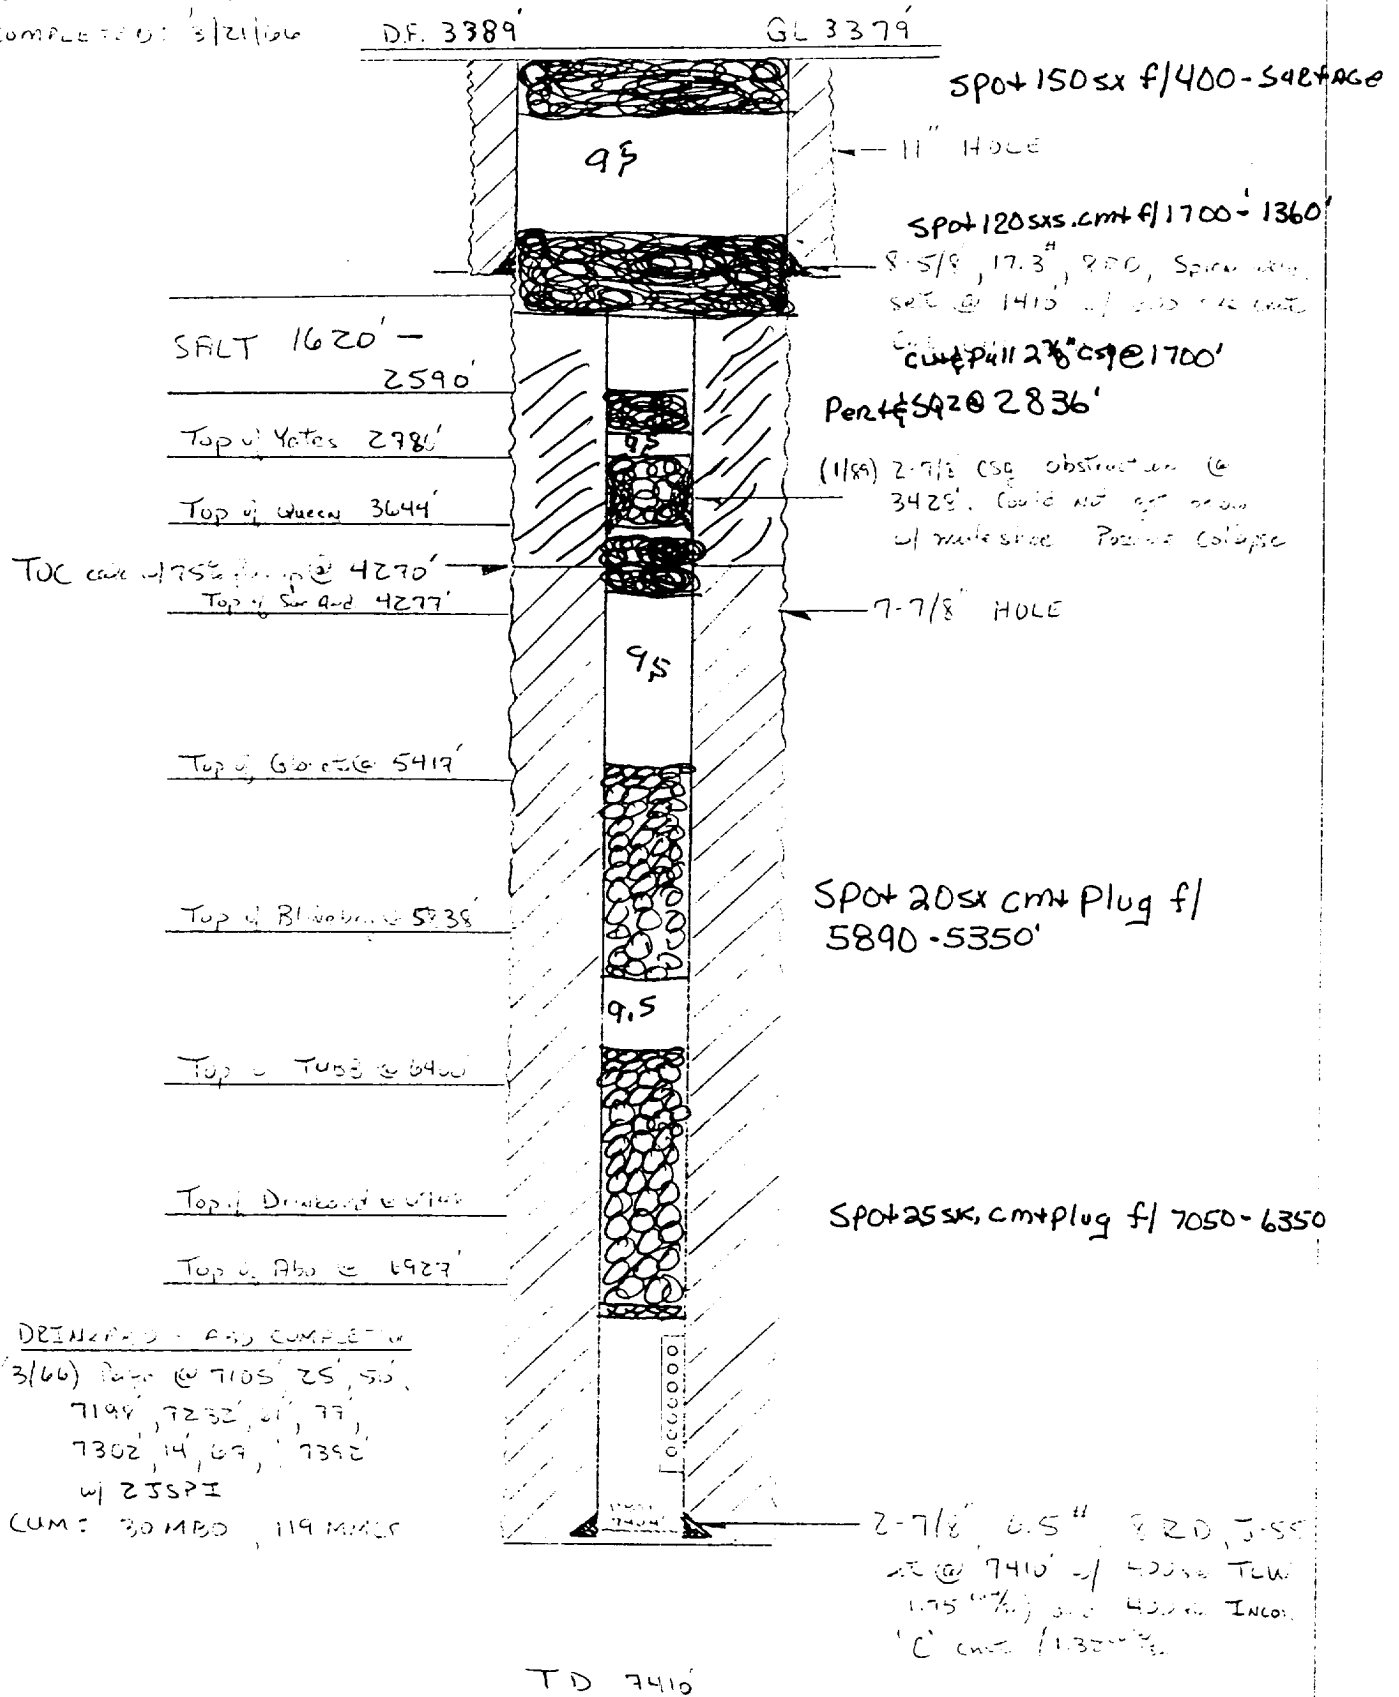 COMPLETED: 3/21/66
D.F. 3389'
GL 3379'
Spot 150sx f/400-SURFACE
11" HOLE
95
Spot 120sxs.cmt f/1700-1360'
8-5/8, 17.3#, 8RD,
set @ 1410' w/
SALT 1620'-
2590'
Cut&Pull 2⅞"csg@1700'
Perf&SQZ@2836'
Top of Yates 2786'
95
(1/89) 2-7/8 CSG obstruction @
3428'. Could not get below
w/ mule shoe Possible Collapse
Top of Queen 3644'
TOC calc w/75% @ 4270'
Top of San And 4277'
7-7/8" HOLE
95
Top of Glorieta 5417'
Spot 20sx cmt Plug f/
5890-5350'
Top of Blinebry @ 5838'
9.5
Top of TUBB @ 6400'
Top of Drinkard @
Spot 25sx, cmt plug f/ 7050-6350
Top of Abo @ 6927'
DRINKARD - ABO COMPLETION
(3/66) Perf @ 7105' 25', 50',
7198', 7232', 61', 77',
7302', 14', 67', 7392'
w/ 2JSPI
CUM: 30 MBO, 119 MMCF
2-7/8" 6.5# 8RD, J-55
@ 7410' w/ TLW
1.75 INCOR
'C' cmt (1.32
TD 7410'